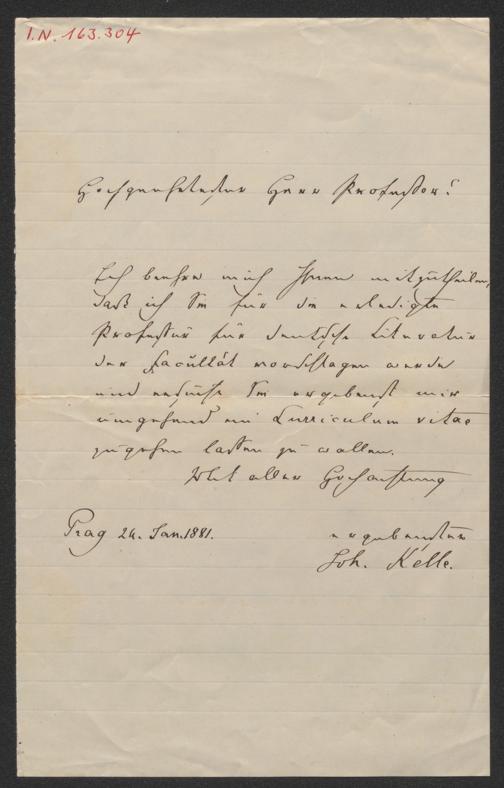 I.N. 163.304
Hochgeehrtester Herr Professor!
Ich beehre mich Ihnen mitzutheilen,
daß ich Sie für die erledigte
Professur für deutsche Literatur
der Facultät vorschlagen werde
und ersuche Sie ergebenst mir
umgehend ein Curriculum vitae
zugehen lassen zu wollen.
Mit aller Hochachtung
Prag 24. Jan. 1881.
ergebenster
Joh. Kelle.